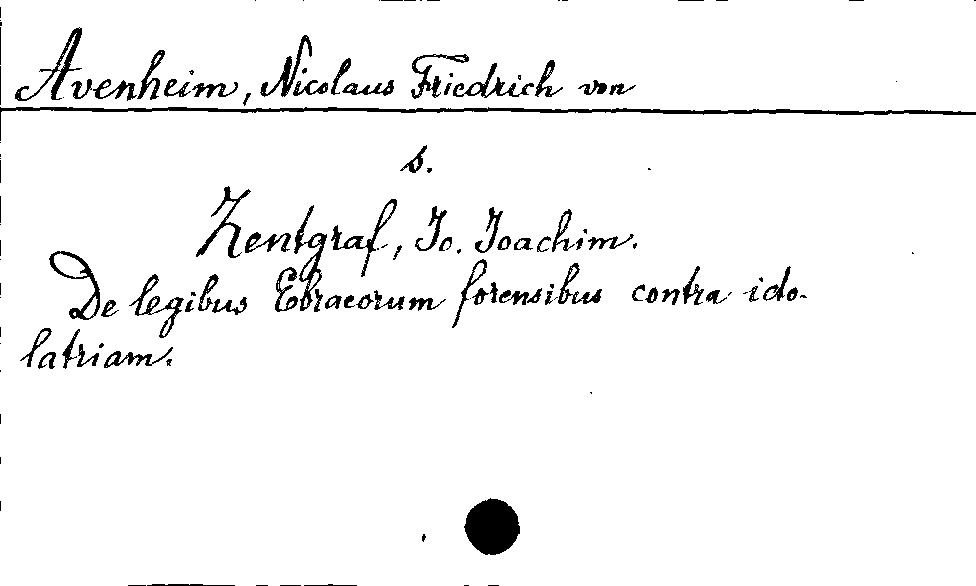 Avenheim, Nicolaus Friedrich von
s.
Zentgraf, Jo. Joachim.
De legibus Ebraeorum forensibus contra ido-
latriam.